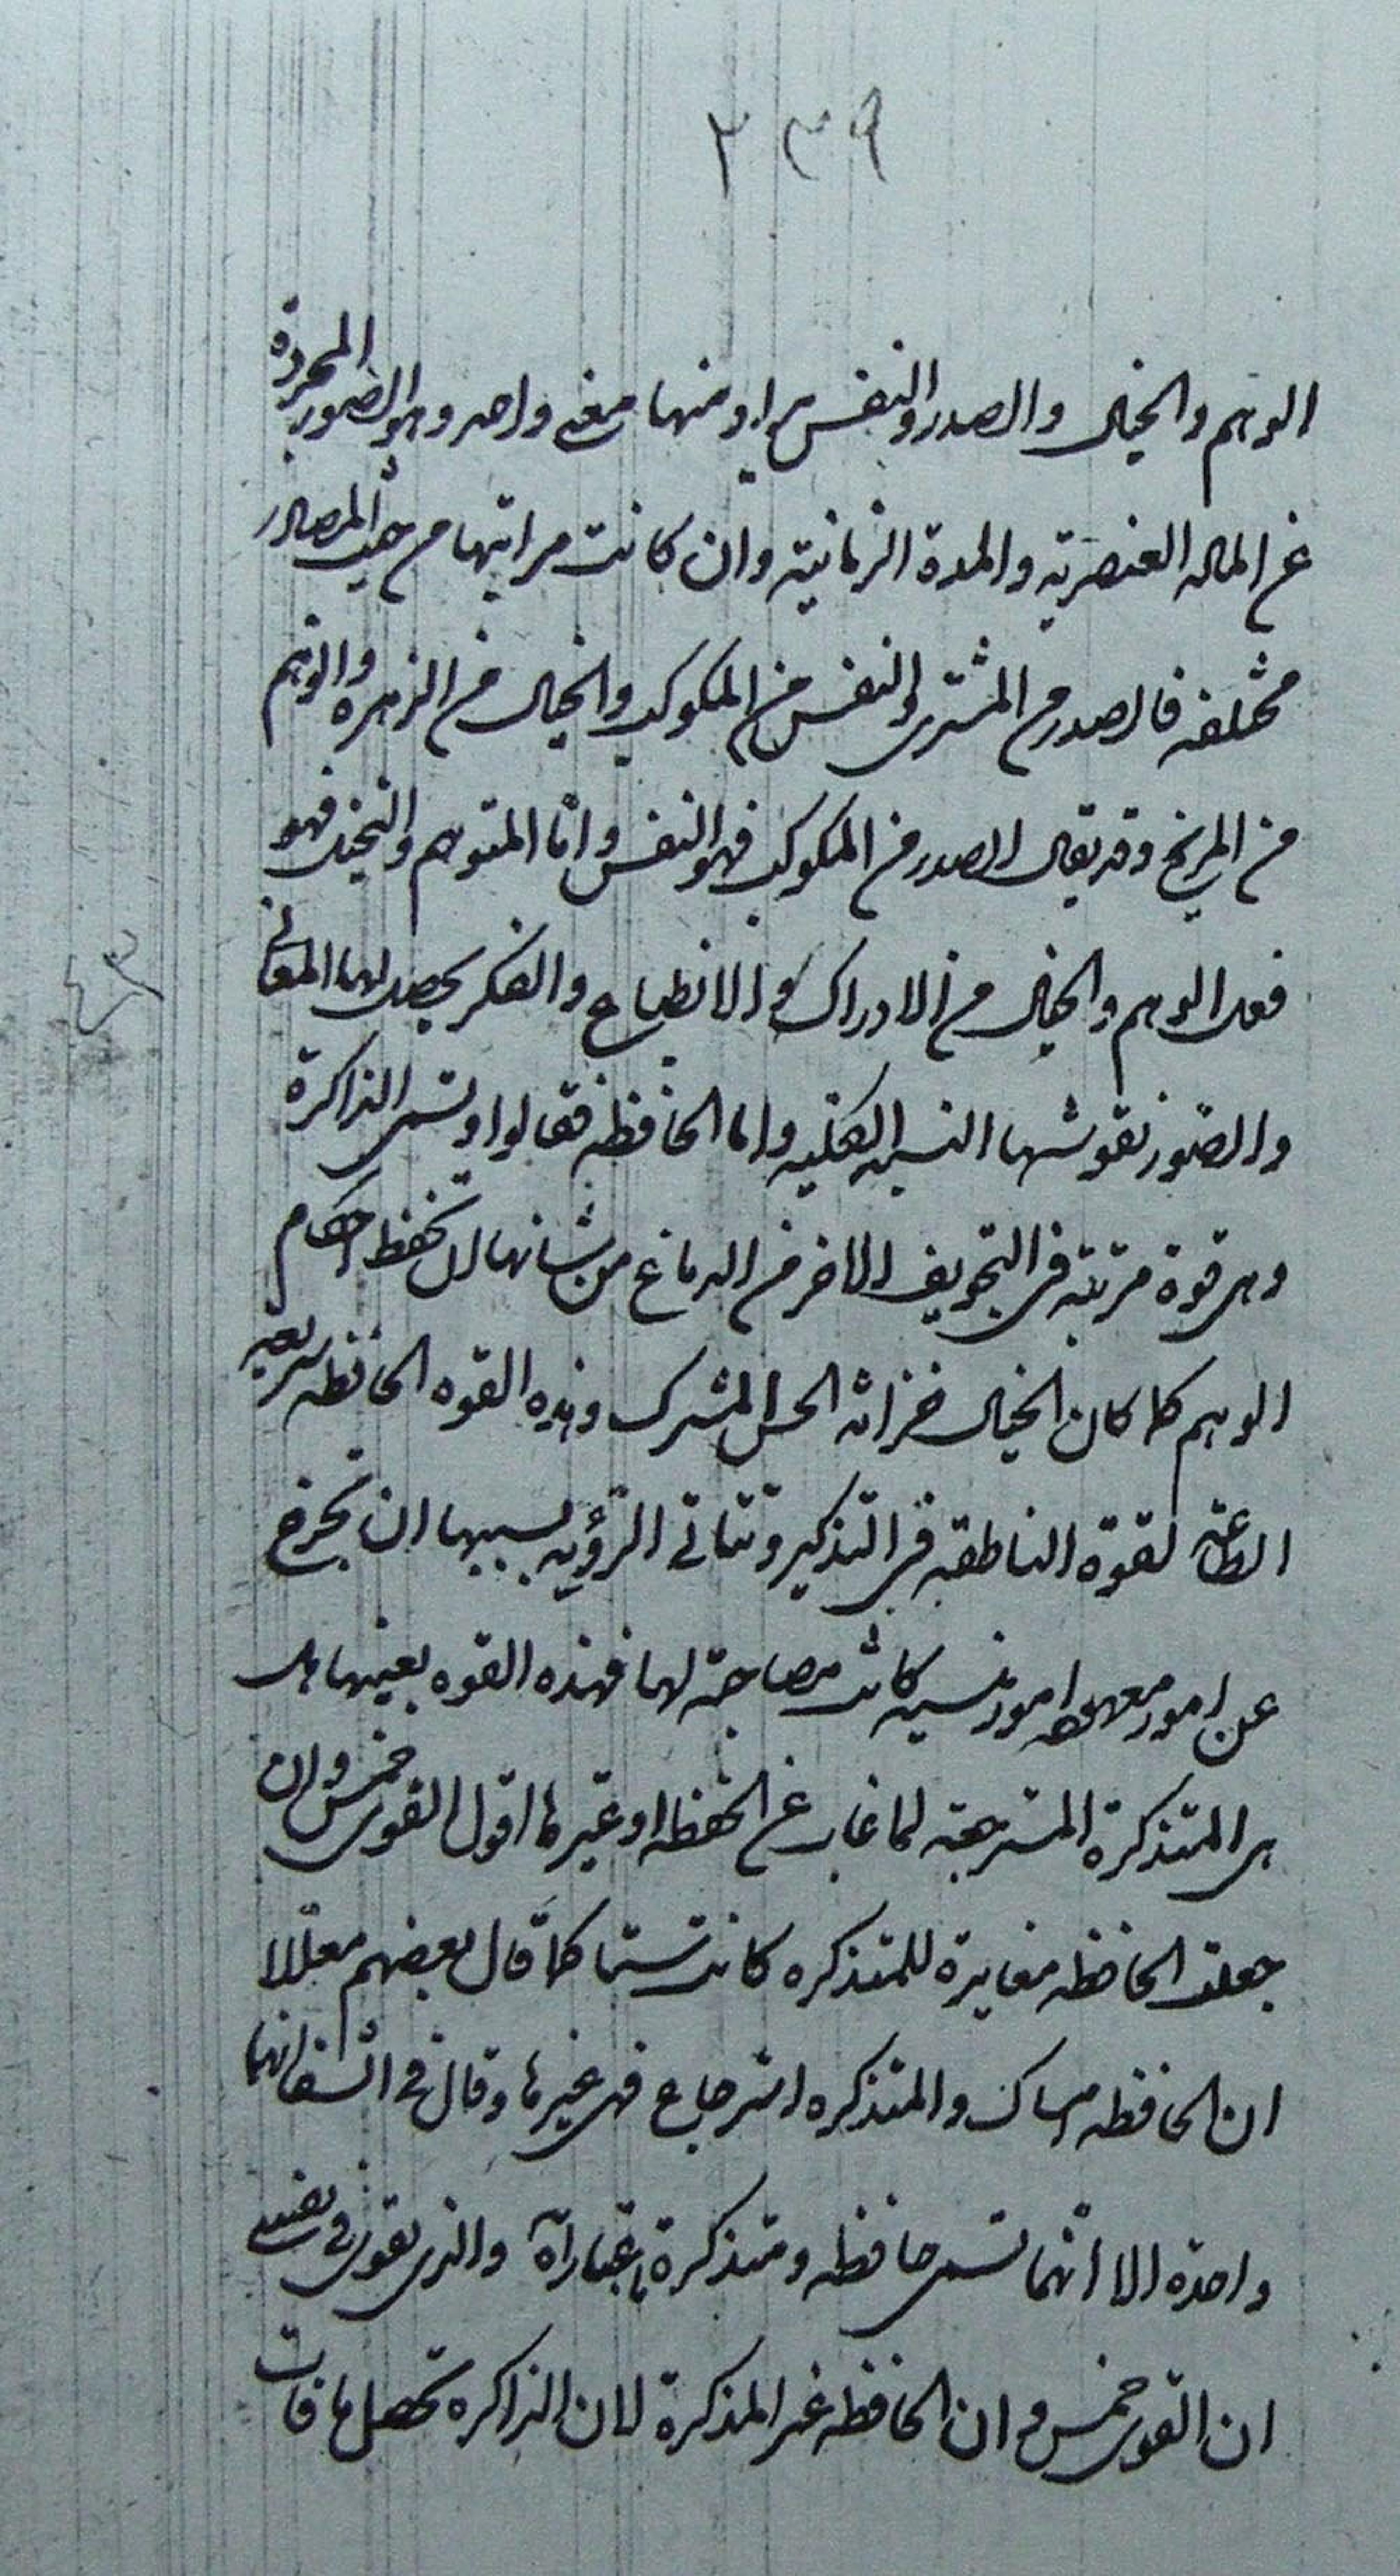 ٢٣٩
الوهم والخيال والصدر والنفس يراد منها معنى واحد وهو الصور المجردة
عن المادة العنصرية والمدة الزمانية وان كانت مراتبها من حيث المصادر
مختلفه فالصدر من المشترى والنفس من المكوكب والخيال من الزهره والوهم
من المريخ وقد يقال الصدر من المكوكب فهو النفس وامّا المتوهم والتخيل فهو
فعل الوهم والخيال من الادراك والانطباع والفكر يحصل لهما المعانى
والصور نقوشها النسبيه الفكليه واما الحافظه فقالوا وتسمى الذاكرة
وهى قوة مرتبة فى التجويف الاخر من الدماغ من شانها ان تحفظ احكام
الوهم كما كان الخيال خزانة الحس المشترك وهذه القوه الحافظه سريعة
الطاعة لقوة الناطقه فى التذكير وتتاتى الرؤيه بسببها ان تخرج
عن امور معهوده امور منسيه كانت مصاحبة لها فهذه القوه بعينها هى
هى المتذكرة المسترجعة لما غاب عن الحفظه او غيرها اقول القوى خمس وان
جعلت الحافظه مغايرة للمتذكره كانت ستا كما قال بعضهم معللا
ان الحافظه امساك والمتذكره استرجاع فهى غيرها وقال فى الشفا انهما
واحدة الا انّها تسمى حافظه ومتذكرة باعتبارات والذى يقوى فى نفسى
ان القوى خمس وان الحافظه غير المذكرة لان الذاكره تحصل ما فات